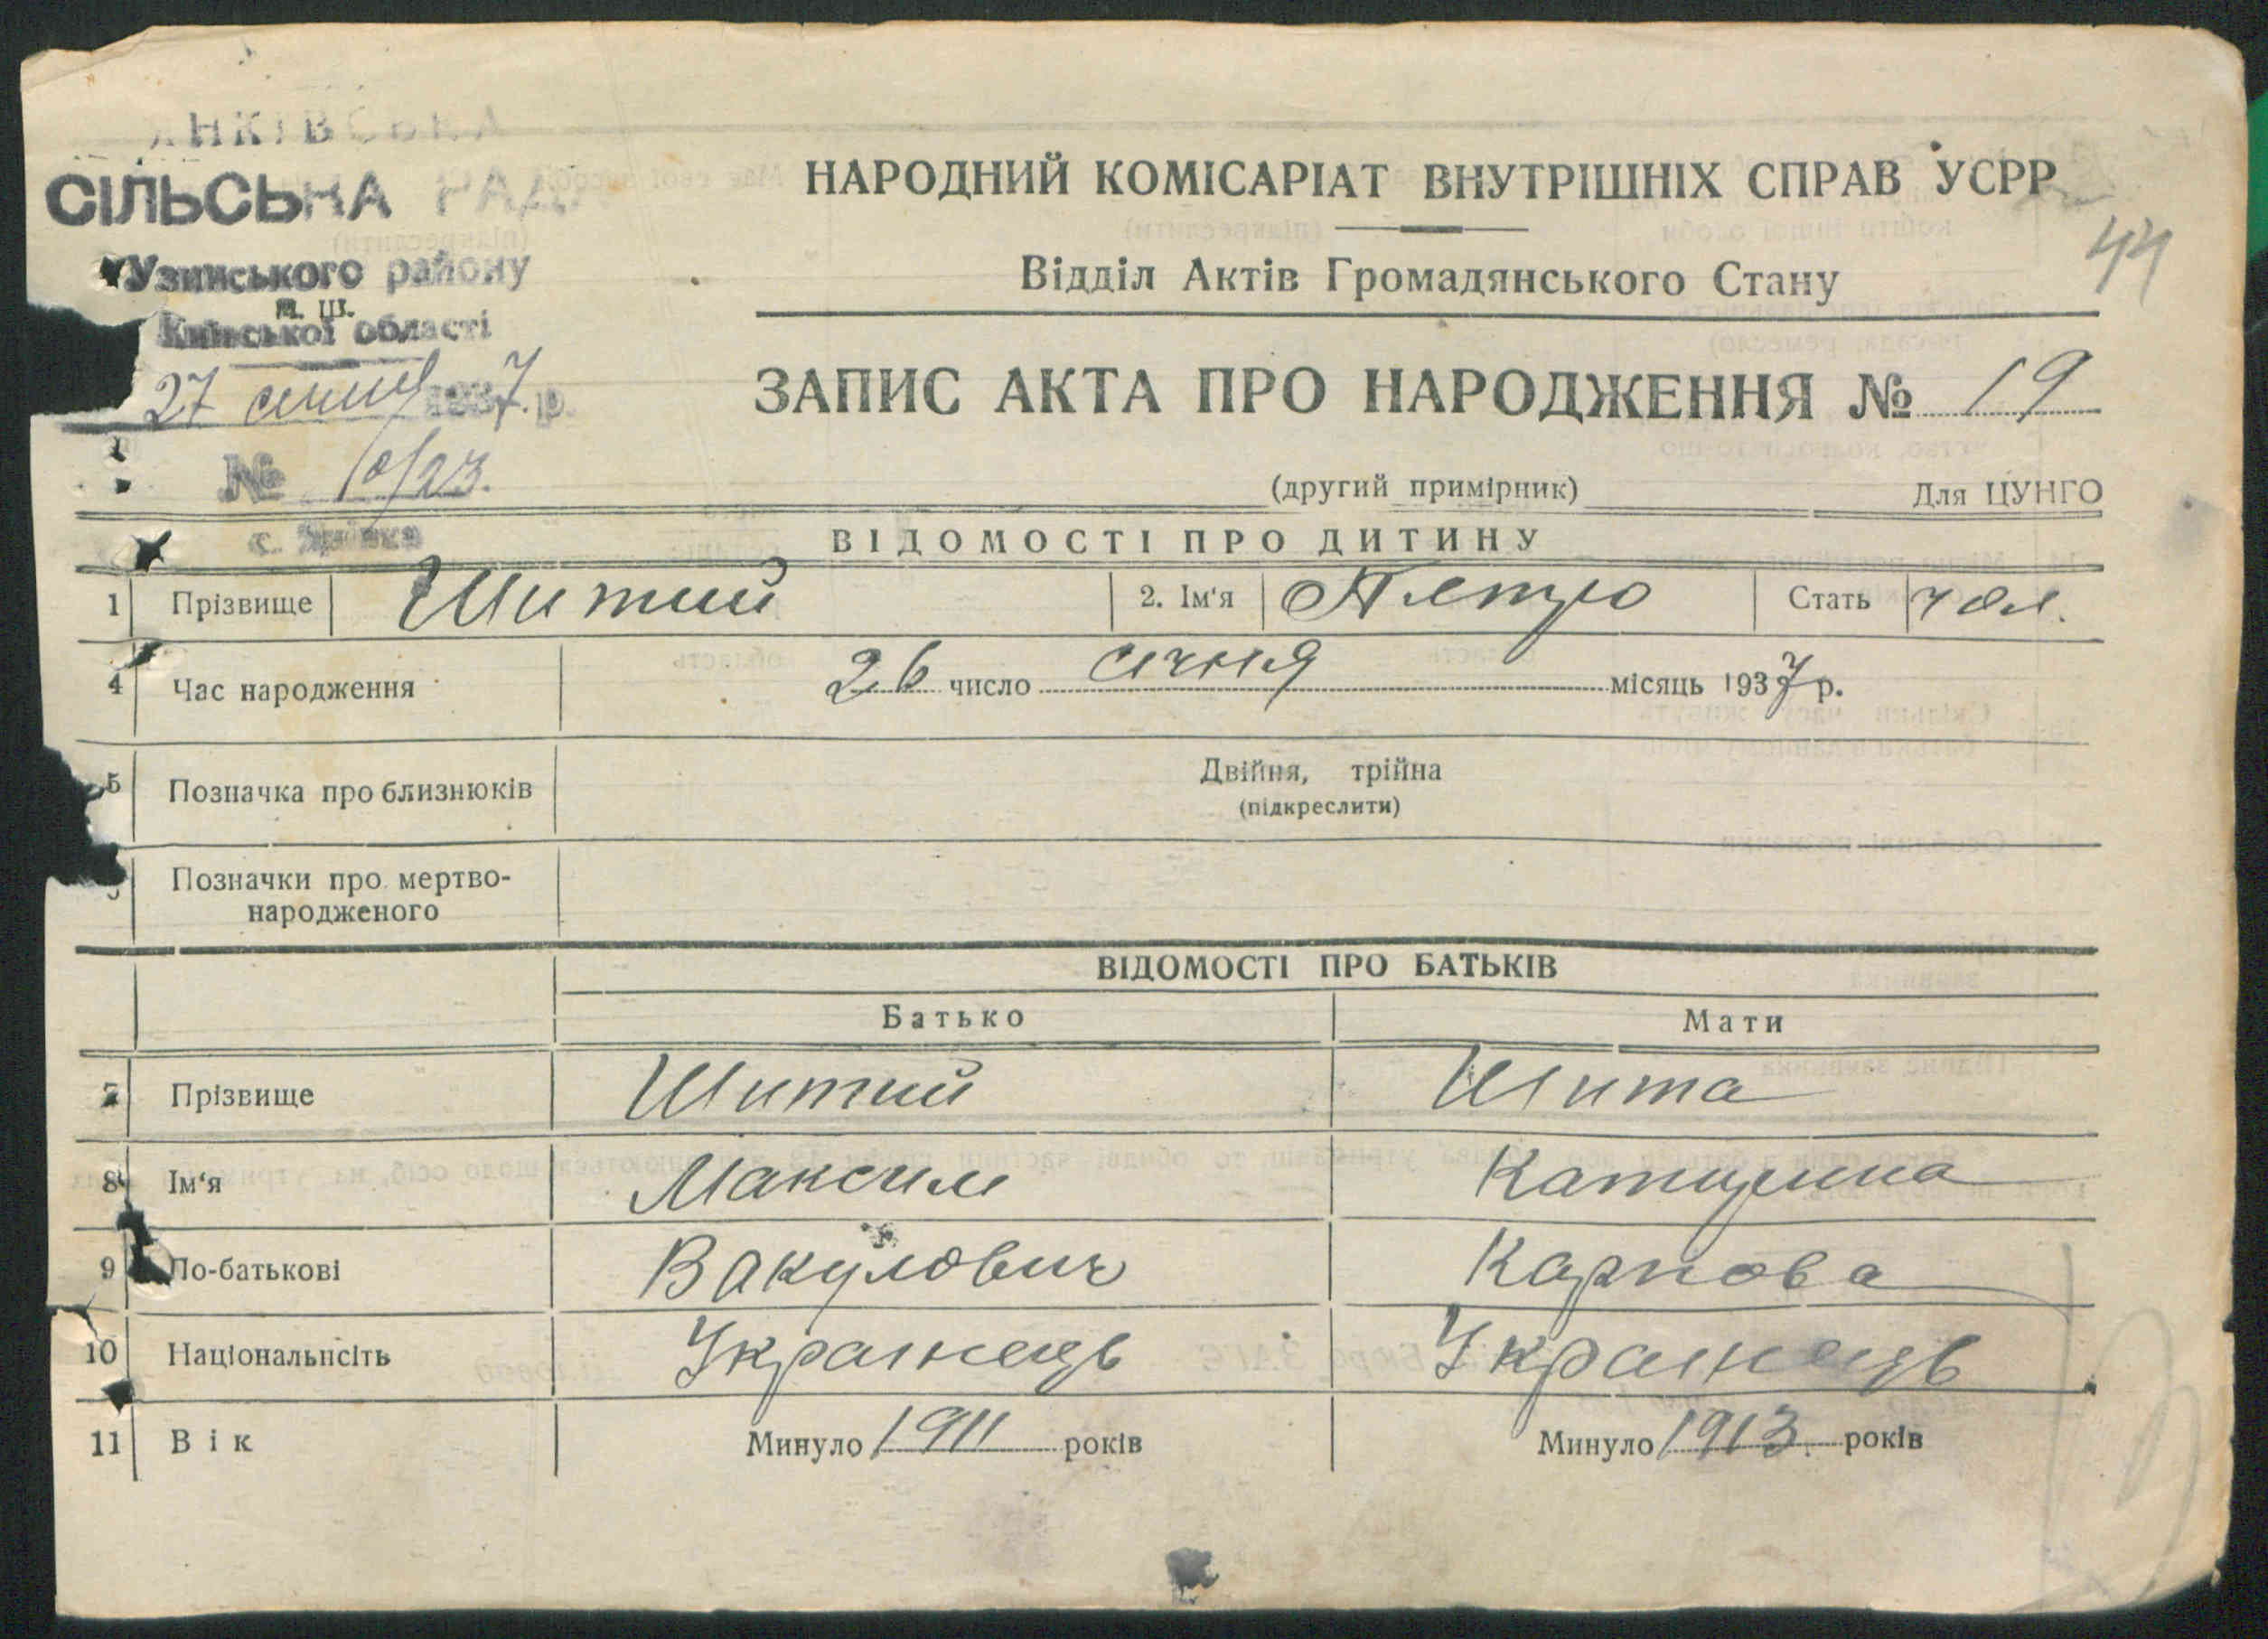 СІЛЬСЬКА РАДА
Узинського району
М. Ш.
Київської області
27 січня 1937 р.
№ 10/23.
НАРОДНИЙ КОМІСАРІАТ ВНУТРІШНІХ СПРАВ УСРР
44
Відділ Актів Громадянського Стану
ЗАПИС АКТА ПРО НАРОДЖЕННЯ № 19
(другий примірник) Для ЦУНГО
ВІДОМОСТІ ПРО ДИТИНУ
1 Прізвище Шитий 2. Ім'я Петро Стать чол.
4 Час народження 26 число січня місяць 1937 р.
5 Позначка про близнюків Двійня, трійна
(підкреслити)
Позначки про мертво-
народженого
ВІДОМОСТІ ПРО БАТЬКІВ
Батько Мати
7 Прізвище Шитий Шита
8 Ім'я Максим Катирина
9 По-батькові Вакулович Карпова
10 Національнсіть Українець Українець
11 Вік Минуло 1911 років Минуло 1913 років